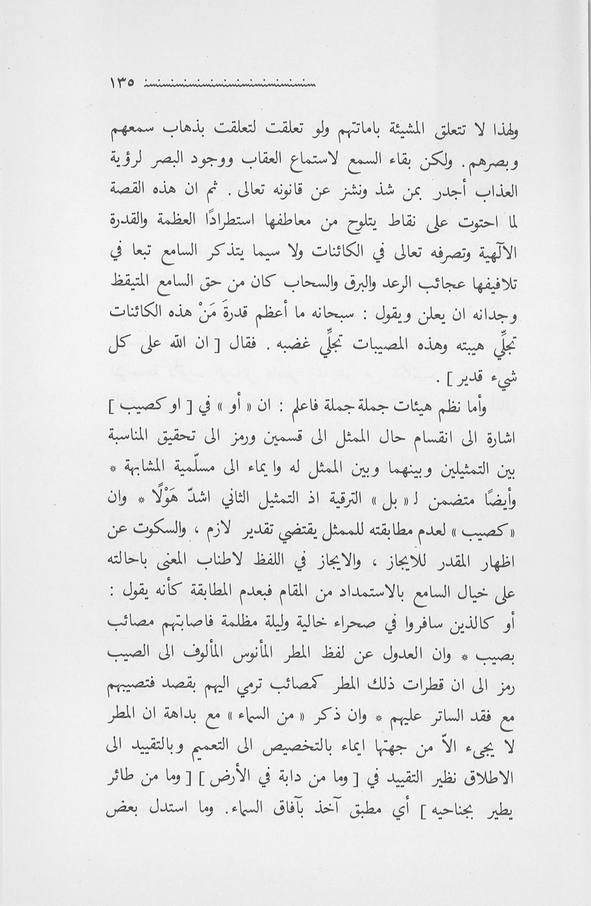 ١٣٥
ولهذا لا تتعلق المشيئة باماتتهم ولو تعلقت لتعلقت بذهاب سمعهم
وبصرهم. ولكن بقاء السمع لاستماع العقاب ووجود البصر لرؤية
العذاب أجدر بمن شذ ونشز عن قانونه تعالى. ثم ان هذه القصة
لما احتوت على نقاط يتلوح من معاطفها استطرادًا العظمة والقدرة
الآلهية وتصرفه تعالى في الكائنات ولا سيما يتذكر السامع تبعا في
تلافيفها عجائب الرعد والبرق والسحاب كان من حق السامع المتيقظ
وجدانه ان يعلن ويقول : سبحانه ما أعظم قدرةَ مَنْ هذه الكائنات
تجلِّي هيبته وهذه المصيبات تجلِّي غضبه. فقال [ ان الله على كل
شيء قدير ] .
وأما نظم هيئات جملة جملة فاعلم : ان « أو » في [ او كصيب ]
اشارة الى انقسام حال الممثل الى قسمين ورمز الى تحقيق المناسبة
بين التمثيلين وبينهما وبين الممثل له وايماء الى مسلّمية المشابهة *
وأيضًا متضمن لـ « بل » الترقية اذ التمثيل الثاني اشدّ هَوْلًا * وان
« كصيب » لعدم مطابقته للممثل يقتضي تقدير لازم ، والسكوت عن
اظهار المقدر للايجاز ، والايجاز في اللفظ لاطناب المعنى باحالته
على خيال السامع بالاستمداد من المقام فبعدم المطابقة كأنه يقول :
أو كالذين سافروا في صحراء خالية وليلة مظلمة فاصابتهم مصائب
بصيب * وان العدول عن لفظ المطر المأنوس المألوف الى الصيب
رمز الى ان قطرات ذلك المطر كمصائب ترمي اليهم بقصد فتصيبهم
مع فقد الساتر عليهم * وان ذكر « من السماء » مع بداهة ان المطر
لا يجيء الاّ من جهتها ايماء بالتخصيص الى التعميم وبالتقييد الى
الاطلاق نظير التقييد في [ وما من دابة في الأرض ] [ وما من طائر
يطير بجناحيه ] أي مطبق آخذ بآفاق السماء. وما استدل بعض